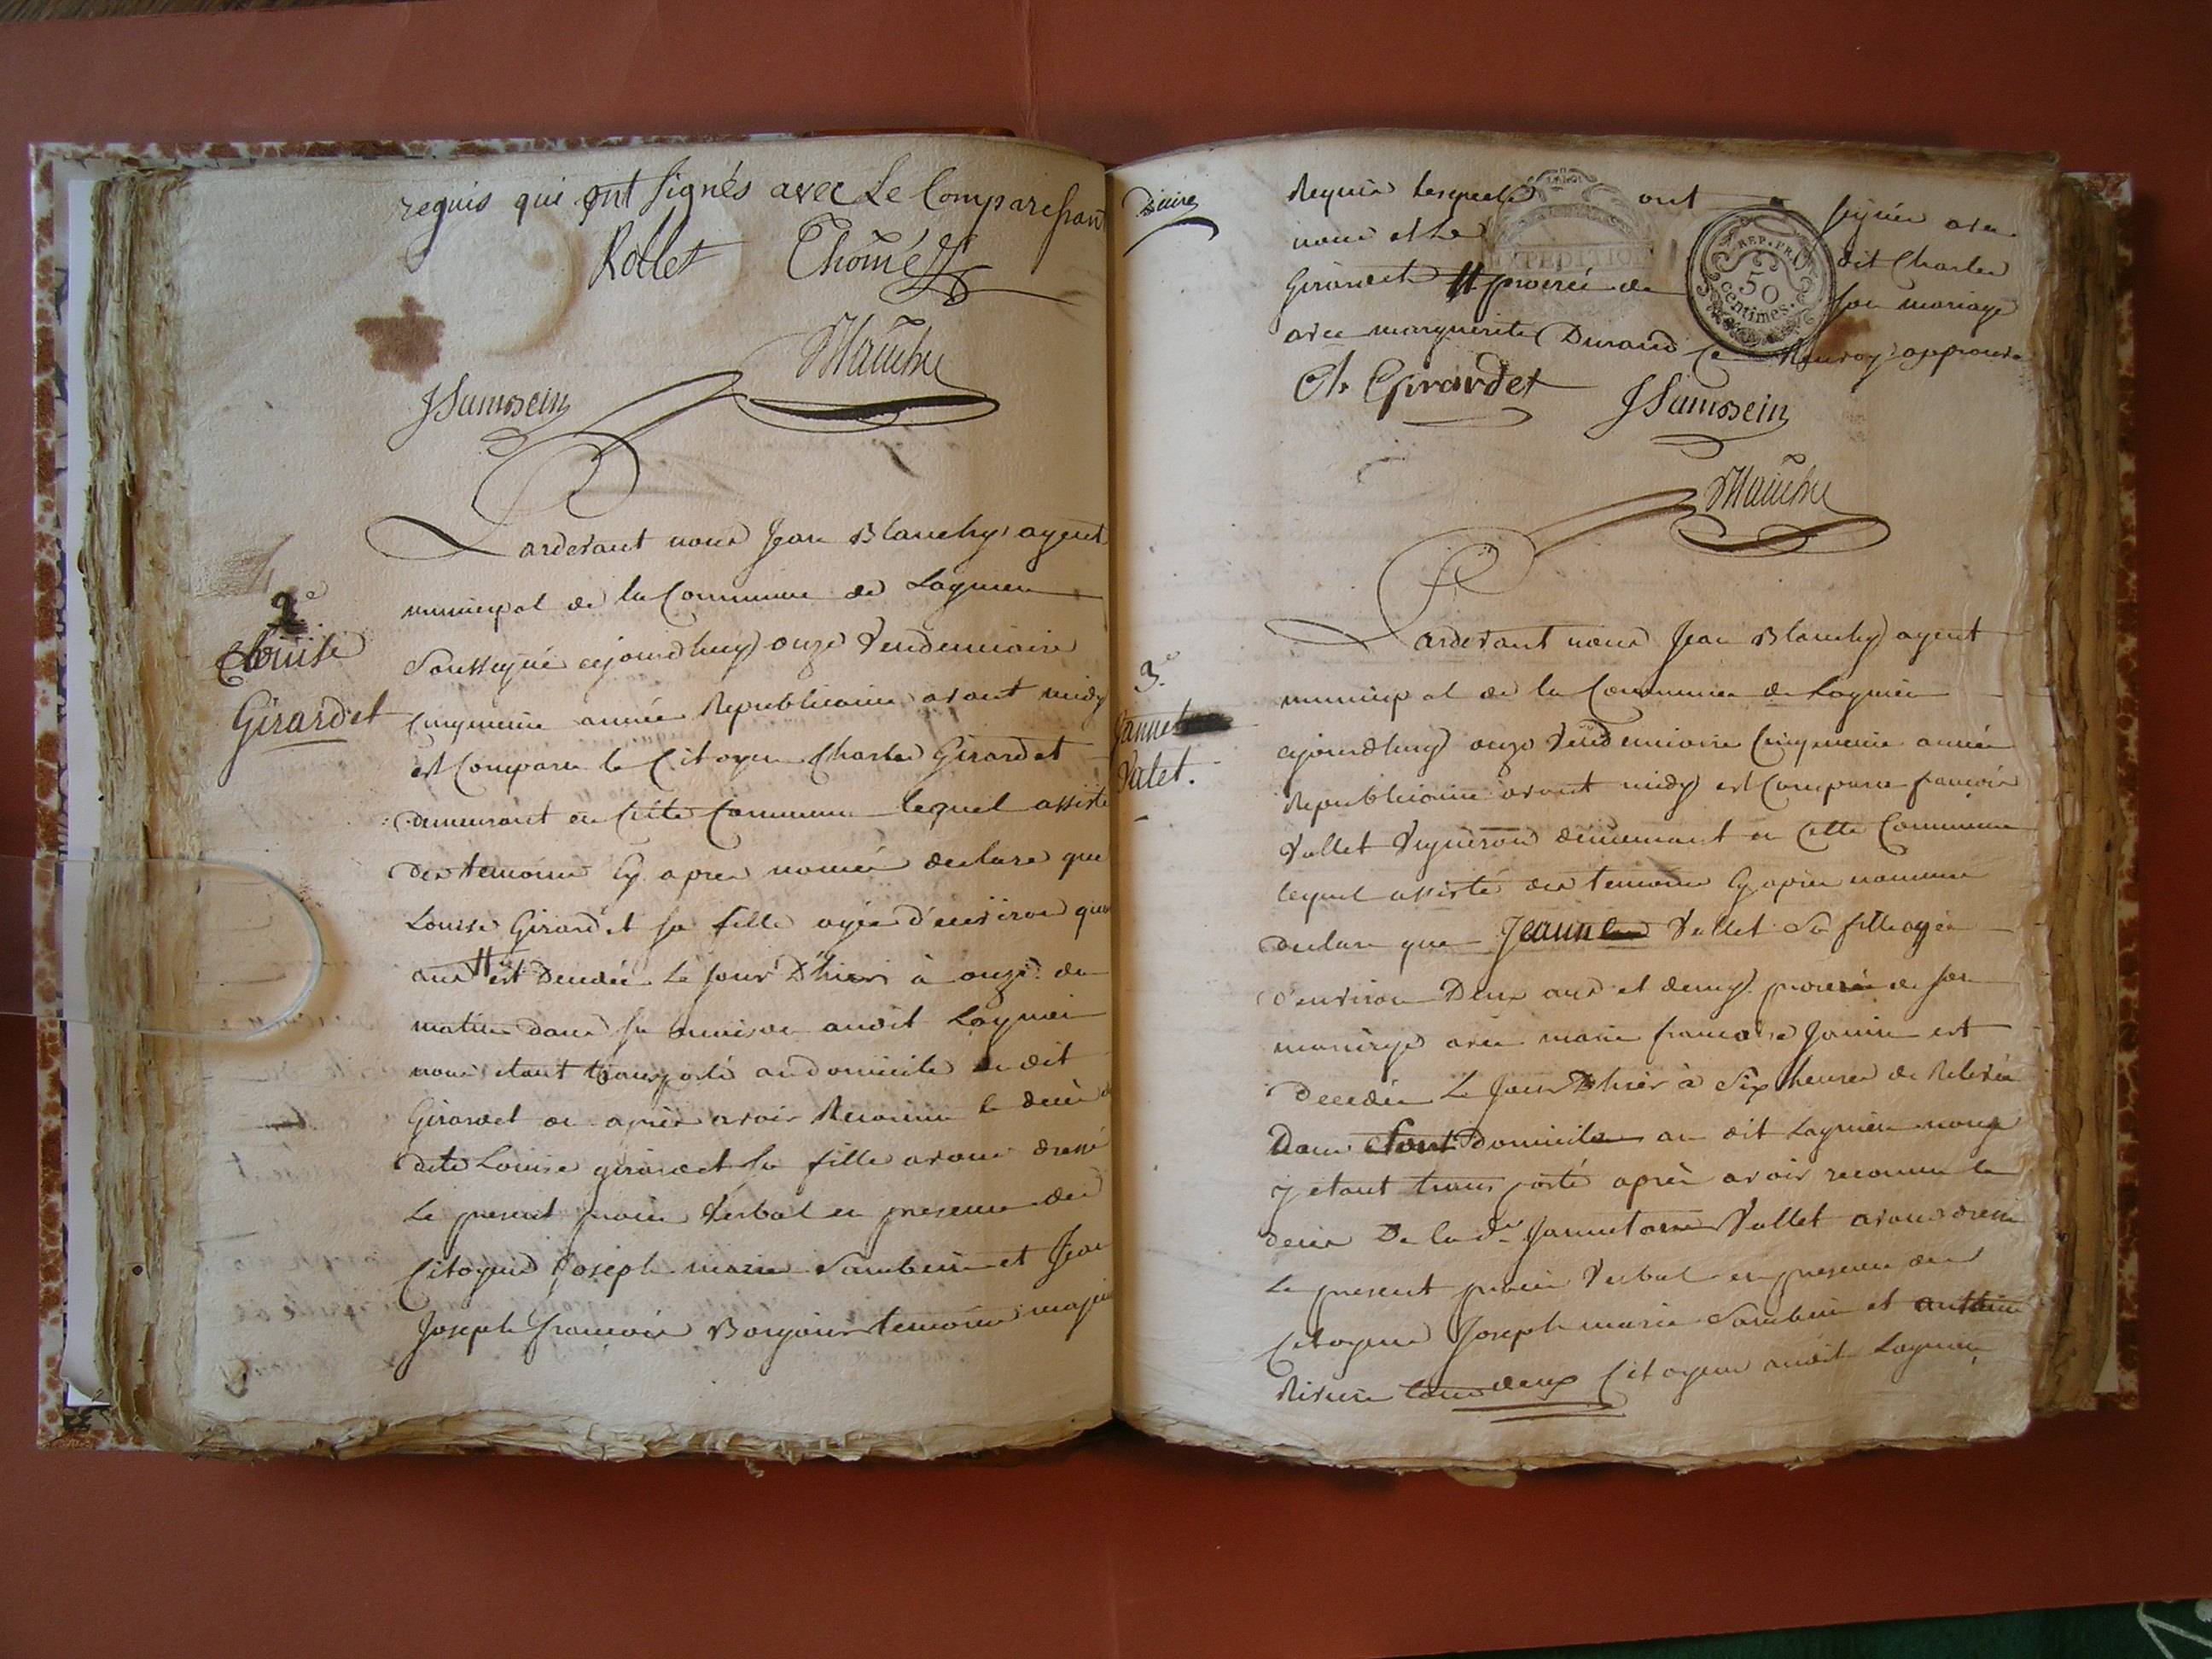 requis qui ont signés avec Le Comparessant
Rollet Thomé
Blanchy
JSambein
2e
Louise
Girardet
Pardevant nous Jean Blanchy agent
municipal de la Commune de Lagnieu
Soussigné ajourdhuy onze Vendemiaire
Cinquieme année Republicaine avant midy
est Comparu le Citoyen Charles Girardet
demeurant en Cette Commune lequel assisté
des temoins Cy apres només declare que
Louise Girardet sa fille agée d'environ quatre
ans # est Decedée Le jour D'hiers à onze du
matin dans sa maison audit Lagnieu
nous etant transporté au domicile du dit
Girardet et après avoir Reconnu le decès
dite Louise girardet sa fille avons dressé
Le present procès Verbal en presence des
Citoyens Joseph marie Sambein et Jean
Joseph francois temoins majeurs
Requis lesquels ont signés avec
nous et Le dit Charles
Girardet # procréé de son mariage
avec marguerite Durand Ce Renvoy approuvé
EXPEDITION
REP. FR.
50
centimes.
Ch Girardet
JSambein
Blanchy
3e
Valet.
Pardevant nous Jean Blanchy agent
municipal de la Commune de Lagnieu
ajourdhuy onze Vendemiaire Cinquieme année
Republicaine avant midy est Comparu francois
Vallet Vigneron demeurant en Cette Commune
lequel assisté des temoins Cy après nommés
declare que Jeanne Vallet Sa fille agée
d'environ Deux ans et demy procréé de son
mariage avec marie francoise Janin est
Decedée Le jour D'hier à Six heures de Relevée
Dans Son Domicile au dit Lagnieu nous
y etant transporté après avoir reconnu le
decès De la de Vallet avons dressé
Le present procès Verbal en presence des
Citoyens Joseph marie Sambein et
tous deux Citoyens audit Lagnieu